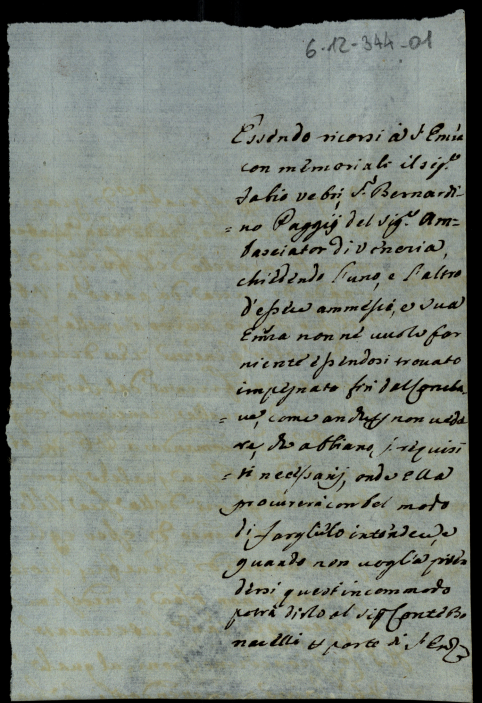 6-12-344-01
Essendo ricorsi à S. Emza
con memoriali il sig.r
Fabio Vebri, S.r Bernardi
= no Paggij del Sig.r Am=
basciator di Venezia,
chiedendo l'uno, e l'altro
d'essere ammessi, e Sua
Emza non ne vuole far
niente essendosi trovato
impegnato fin dal Concla-
ve, come anche non vede
re, che abbiano, i requisi
= ti necessarij, onde ella
procurerà con bel modo
di farglielo intendere, e
quando non voglia pren
dersi quest'incommodo
potrà dirlo al Sig. Conte Bo
nacelli à parte di S. Em.za